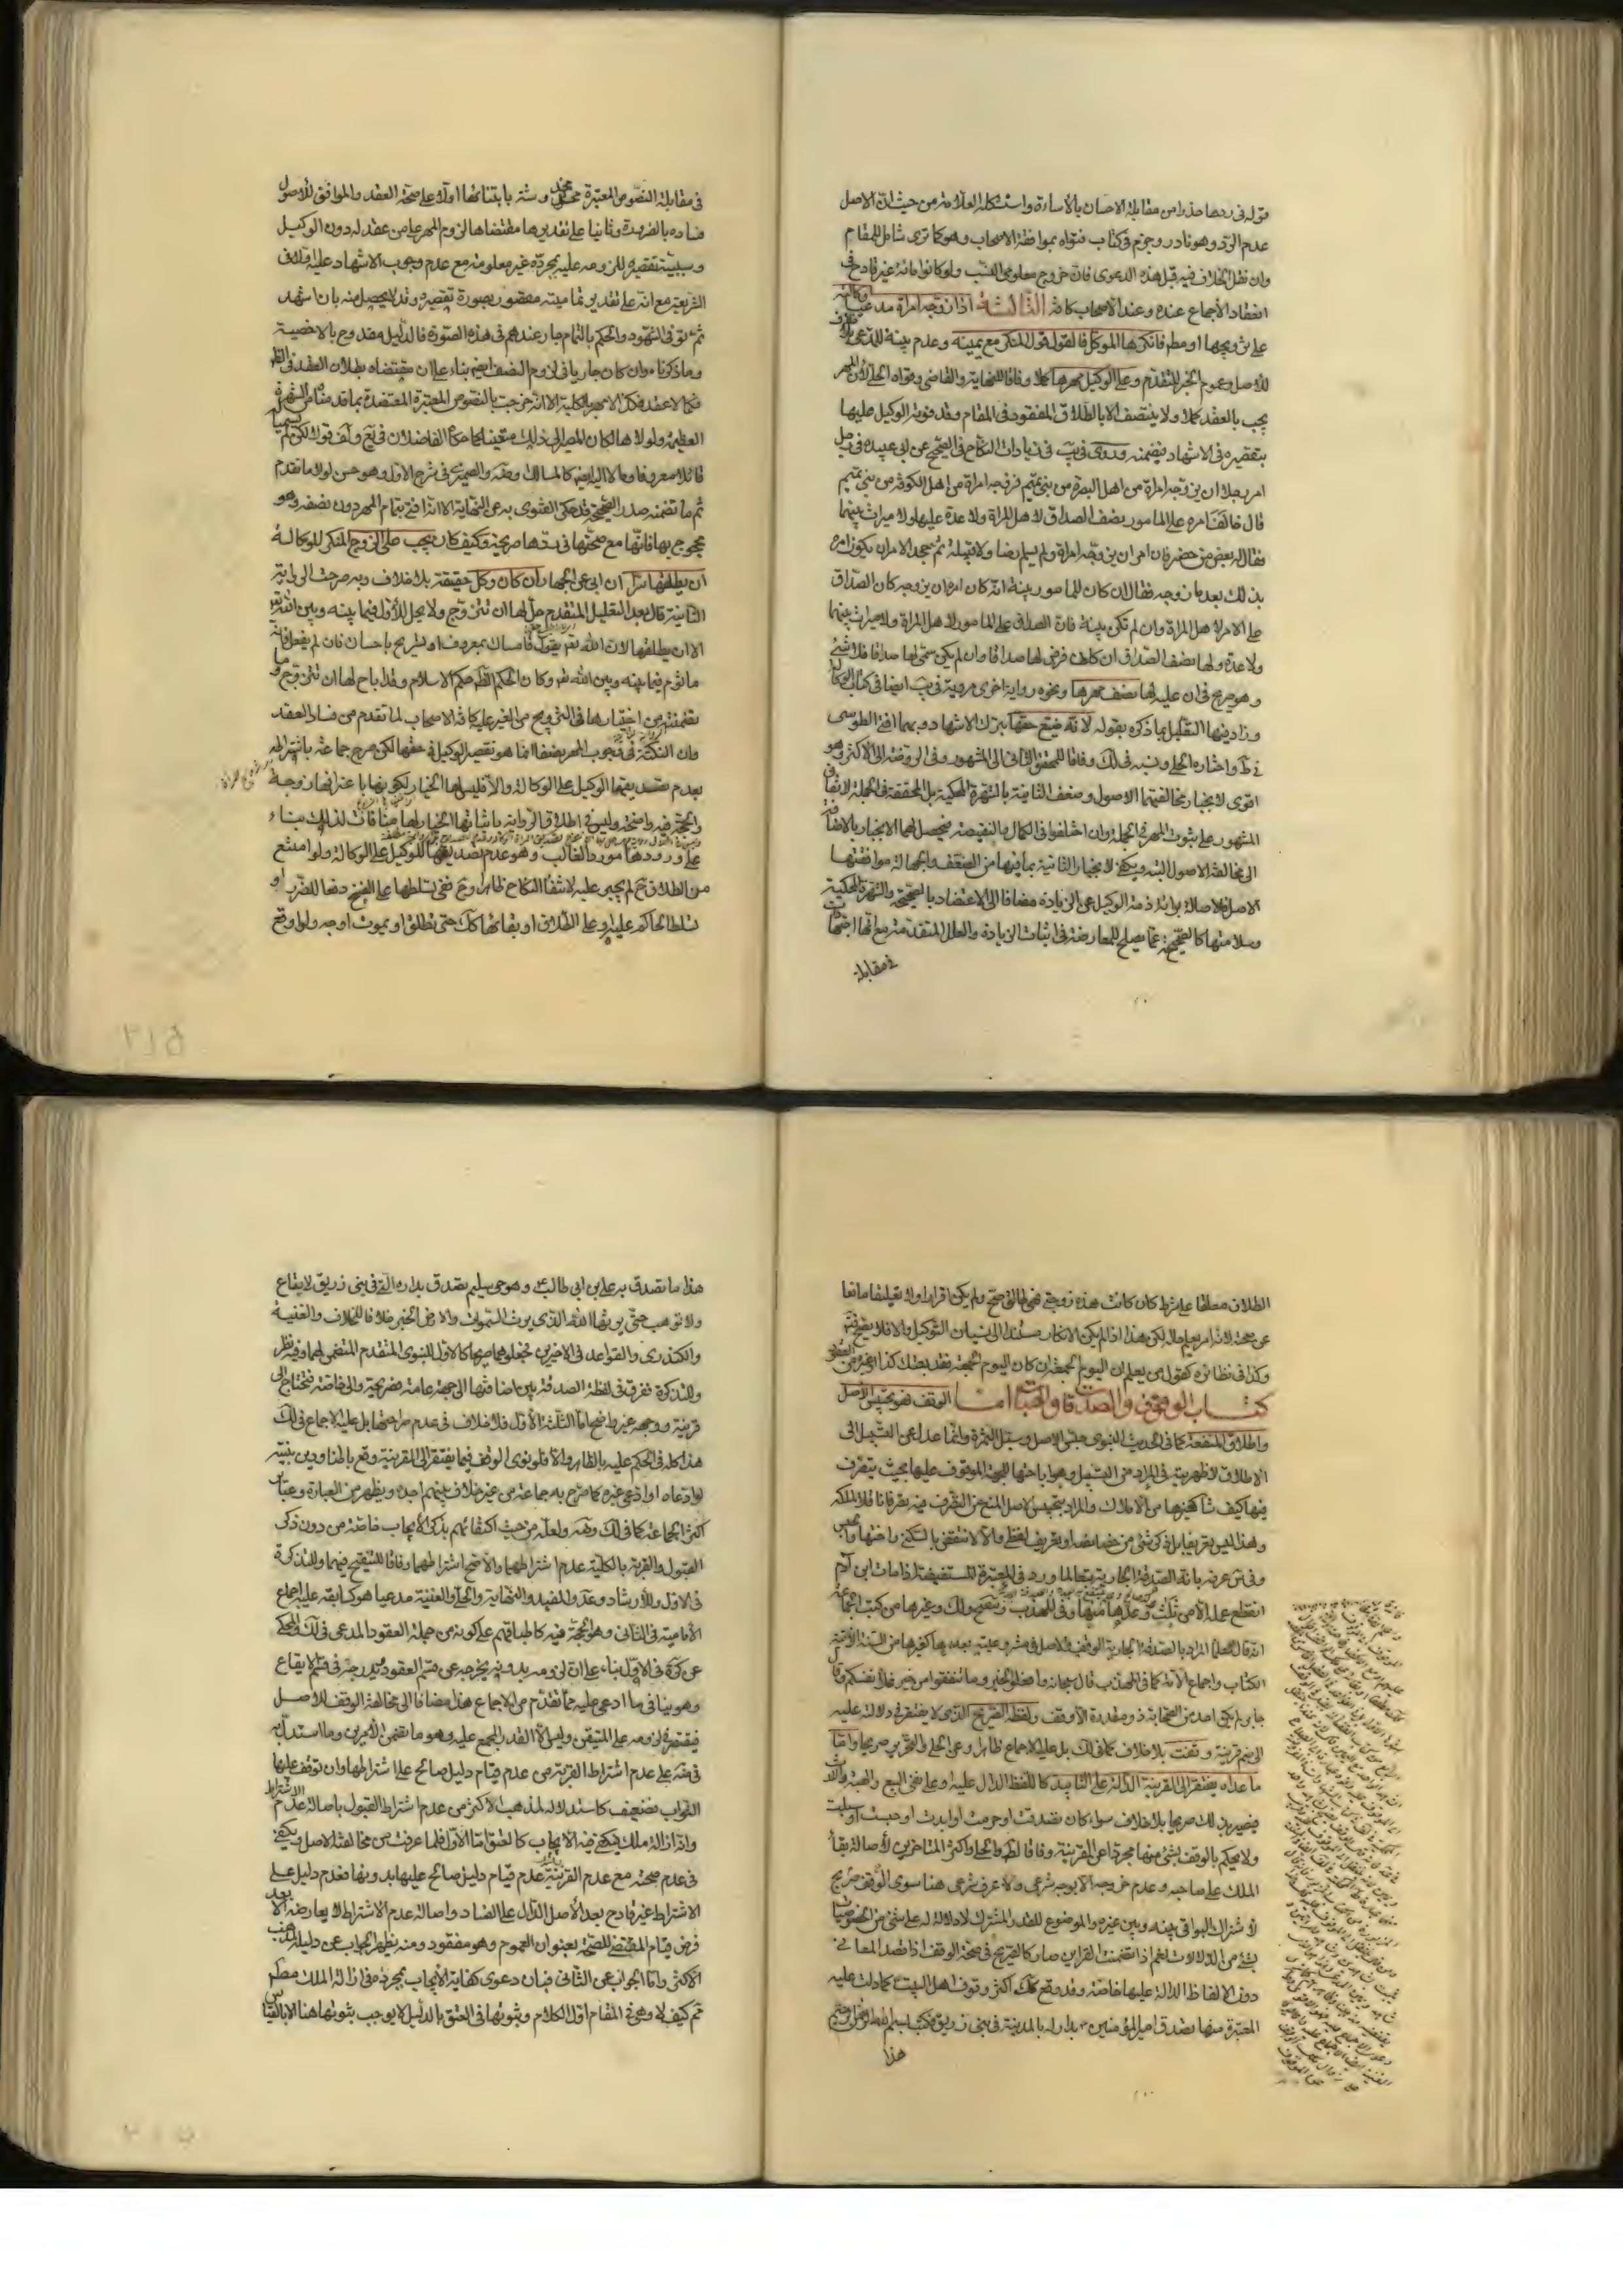 قوله في ردها حذرا من مقابلة الاحسان بالأساءة واستشكله العلامة من حيث ان الاصل
عدم الرد وهو نادر وجزم في كتاب فتواه بموافقة الاصحاب وهو كما ترى شامل للمقام
وان نقل الخلاف فيه قبل هذه الدعوى فان خروج معلومي النسب ولو كانوا مائة غير قادح في
انعقاد الأجماع عنده وعند الاصحاب كافة الثالثة اذا زوجه امراة مدعيا وكالته
على تزويجها او مطلقا فانكرها الموكل فالقول قول المنكر مع يمينه وعدم بينة للمدعي بلا خلاف
للاصل وعموم الخبر المتقدم وعلى الوكيل مهرها كملا وفاقا للنهاية والقاضي وقواه الحلي لان المهر
يجب بالعقد كملا ولا ينتصف الا بالطلاق المفقود في المقام وقد فوته الوكيل عليها
بتقصيره في الاشهاد فيضمنه وروى في يب في زيادات النكاح في الصحيح عن ابي عبيدة في رجل
امر رجلا ان يزوجه امراة من اهل البصرة من بني تميم فزوجه امراة من اهل الكوفة من بني تميم
قال خالف امره على المامور نصف الصداق لاهل المراة ولا عدة عليها ولا ميراث بينهما
فقال له بعض من حضر فان امره ان يزوجه امراة ولم يسم ارضا ولا قبيلة ثم جحد الامر ان يكون امره
بذلك بعد ما زوجه فقال ان كان للمامور بينة انه كان امره ان يزوجه كان الصداق
على الامر لاهل المراة وان لم تكن بينة فان الصداق على المامور لاهل المراة ولا ميراث بينهما
ولا عدة ولها نصف الصداق ان كان فرض لها صداقا وان لم يكن سمى لها صداقا فلا شئ
وهو صريح في ان عليه لها نصف مهرها ونحوه رواية اخرى مروية في يب ايضا في كتاب الوكالة
وزاد فيها التعليل بما ذكره بقوله لانه ضيع حقها بترك الاشهاد وبهما افتى الطوسي
في ط واختاره الحلي ونسبه في لك وفاقا للمحقق الثاني الى المشهور وفي الروضة الى الاكثر وهو
اقوى لانجبار مخالفتهما الاصول وضعف الثانية بالشهرة المحكية بل المحققة في الجملة لاتفاق
المشهور على ثبوت المهر في الجملة وان اختلفوا في الكمال بالنقيصة فيحصل لهما الانجبار بالاضافة
الى مخالفة الاصول البتة ويكفي لانجبار الثانية بما فيها من الضعف والجهالة موافقتها
الاصل فلاصالة براءة ذمة الوكيل عن الزيادة مضافا الى الاعتضاد بالصحيحة والشهرة المحكية
وسلامتها كالصحيحة عما يصلح للمعارضة في اثبات الزيادة والعلل المتقدمة مع انها اجتهادات
في مقابلة
في مقابلة النصوص المعتبرة مخدوشة بابتنائها اولا على صحة العقد والموافق للاصول
فساده بالضرورة وثانيا على تقديرها مقتضاها لزوم المهر على من عقد له دون الوكيل
وسببية تقصيره للزومه عليه بمجرده غير معلومة مع عدم وجوب الاشهاد عليه ولا في
الشريعة مع انه على تقدير تماميته مقصور بصورة تقصيره وقد لا يحصل منه بان اشهد
ثم توفى الشهود والحكم بالتمام جار عندهم في هذه الصورة فالدليل مقدوح بالاخصية
وما ذكرناه وان كان جاريا في لزوم النصف ايضا بناء على ان مقتضاه بطلان العقد في الظاهر
فكما لا عقد فكذا لا مهر بالكلية الا انه خرجت بالنصوص المعتبرة المعتضدة بما قد مناه من الشهرة
العظيمة ولولاها لكان المصير الى ذلك متعينا كما حكاه الفاضلان في يع ولف قولا لكن لم يسميا
قائلا معروفا ومالا اليه ايضا كالمسالك وضه والصيمري في شرح الاول وهو حسن لولا ما تقدم
ثم ما تضمنه صدر الصحيحة قد حكى الفتوى به عن النهاية الا انه افتى بتمام المهر دون نصفه وهو
محجوج بها فانها مع صحتها في ردها صريحة وكيف كان يجب على الزوج المنكر للوكالة
ان يطلقها سرا ان ابى عن الجهار ان كان وكل حقيقة بلا خلاف وبه صرحت الرواية
الثانية قال بعد التعليل المتقدم حل لها ان تتزوج ولا يحل للأول فيما بينه وبين الله تعالى
الا ان يطلقها لان الله تعم يقول فامساك بمعروف او تسريح باحسان فان لم يفعل فانه
ماثوم فيما بينه وبين الله تعم وكان الحكم الظاهر حكم الاسلام وقد اباح لها ان تتزوج وما
تضمنته من اختيارها في التزويج من الغير عليه كافة الاصحاب لما تقدم من فساد العقد
وان النكتة في وجوب المهر نصفا انما هو تقصير الوكيل في حقها لكن صرح جماعة باشتراطه
بعدم تصديقها الوكيل على الوكالة والا فليس لها الخيار لكونها باعترافها زوجة
والحجة فيه واضحة وليس في اطلاق الرواية باثباتها الخيار لها منافات لذلك بناء
على ورودها مورد الغالب وهو عدم تصديقها للوكيل على الوكالة ولو امتنع
من الطلاق ح لم يجبر عليه لانتفاء النكاح ظاهرا وح ففي تسلطها على الفسخ دفعا للضرر او
تسلط الحاكم عليه او على الطلاق او بقائها كذلك حتى يطلق او يموت اوجه ولو اوقع
الطلاق معلقا على شرط كان كانت هذه زوجتي فهي طالق صح ولم يكن اقرارا ولا تعليقا مانعا
عن صحته لانه امر يعلم حاله لكن هذا اذا لم يكن الانكار مستندا الى نسيان التوكيل والا فلا يصح
وكذا في نظائره كقول من يعلم ان اليوم الجمعة ان كان اليوم الجمعة فقد بعتك كذا او غيره من العقود
كتاب الوقوف والصدقات والهبات اما الوقف فهو تحبيس الاصل
واطلاق المنفعة كما في الحديث النبوي حبس الاصل وسبل الثمرة وانما عدل عن التسبيل الى
الاطلاق لاظهريته في المراد من التسبيل وهو اباحتها للجهة الموقوف عليها بحيث يتصرف
فيها كيف شاء كغيرها من الاملاك والمراد بتحبيس الاصل المنع من التصرف فيه تصرفا ناقلا لملكه
وهذا ليس تعريفا بل ذكر شئ من خصائصه او تعريف لفظي والا لانتقض بالسكنى واختيها والحبس
وفي س عرفه بانه الصدقة الجارية تبعا لما ورد في المعتبرة المستفيضة اذا مات ابن آدم
انقطع عمله الا من ثلث وعدها منها وفي المهذب والتنقيح ولك وغيرها من كتب الجماعة
انه قال العلماء المراد بالصدقة الجارية الوقف والاصل في مشروعيته بعدها كغيرها من السنة الاتية
الكتاب واجماع الامة كما في المهذب قال سبحانه وافعلوا الخير وما تنفقوا من خير فلانفسكم وقال
جابر لم يكن احد من الصحابة ذو مقدرة الا وقف ولفظه الصريح الذي لا يفتقر في دلالته عليه
الى ضم قرينة وقفت بلا خلاف كما في لك بل عليه الاجماع ظاهرا وعن الحلي والتحرير صريحا واما
ما عداه يفتقر الى القرينة الدالة على التابيد كاللفظ الدال عليه او على نفي البيع والهبة والارث
فيصير بذلك صريحا بلا خلاف سواء كان تصدقت او حرمت او ابدت او حبست او سبلت
ولا يحكم بالوقف بشئ منها مجردا عن القرينة وفاقا لط والحلي واكثر المتاخرين لأصالة بقاء
الملك على صاحبه وعدم خروجه الا بوجه شرعي ولا عرف شرعي هنا سوى الوقف صريح
لاشتراك البواقي بينه وبين غيره والموضوع للقدر المشترك لا دلالة له على شئ من الخصوصيات
بشئ من الدلالات نعم اذا انضمت القراين صار كالصريح في صحة الوقف اذا قصد المعاني
دون الالفاظ الدالة عليها خاصة وقد وقع كك اكثر وقوف اهل البيت ع كما دلت عليه
المعتبرة منها تصدق امير المؤمنين ع بدار له بالمدينة في بني زريق فكتب
هذا
هذا ما تصدق به علي بن ابي طالب ع وهو حي سليم تصدق بداره التي في بني زريق لا تباع
ولا توهب حتى يرثها الله الذي يرث السموات والارض الخبر خلافا للخلاف والغنية
والكندري والقواعد في الاخيرين فجعلوهما صريحا كالاول للنبوي المتقدم المتضمن لهما وفيه نظر
وللتذكرة ففرق في لفظة الصدقة بين اضافتها الى جهة عامة فصريحة والى خاصة فتحتاج الى
قرينة ووجهه غير واضح واما الثلثة الأول فلا خلاف في عدم صراحتها بل عليه الاجماع في لك
هذا كله في الحكم عليه بالظاهر والا فلو نوى الوقف فيما يفتقر الى القرينة وقع باطنا ودين بنيته
لو ادعاه او ادعى غيره كما صرح به جماعة من غير خلاف بينهم اجده ويظهر من العبارة وعبائر
اكثر الجماعة كما في لك وضه ولعله من حيث اكتفائهم بذكر الأيجاب خاصة من دون ذكر
القبول والقربة بالكلية عدم اشتراطهما والاصح اشتراطهما وفاقا للتنقيح فيهما وللتذكرة
في الاول وللأرشاد وعد والمفيد والنهاية والحلي والغنية مدعيا هو كسابقه عليه اجماع
الأمامية في الثاني وهو الحجة فيه كاطباقهم على كونه من جملة العقود المدعى في لك والمحكي
عن كره في الاول بناء على ان لزومه بدونه يخرجه عن قسم العقود ويدرجه في قسم الايقاع
وهو ينافي ما ادعى عليه مما تقدم من الاجماع هذا مضافا الى مخالفة الوقف للاصل
فيقتصر في لزومه على المتيقن وليس الا القدر المجمع عليه وهو ما تضمن الأمرين وما استدل به
في ضه على عدم اشتراط القربة من عدم قيام دليل صالح على اشتراطها وان توقف عليها
الثواب فضعيف كاستدلاله لمذهب الاكثر من عدم اشتراط القبول باصالة عدم الاشتراط
وانه ازالة ملك فيكفي فيه الايجاب كالعتق اما الاول فلما عرفت من مخالفته الاصل ويكفي
في عدم صحته مع عدم القربة عدم قيام دليل صالح عليها بدونها فعدم دليل على
الاشتراط غير قادح بعد الأصل الدال على الفساد واصالة عدم الاشتراط لا يعارضه الا بعد
فرض قيام المقتضي للصحة بعنوان العموم وهو مفقود ومنه يظهر الجواب عن دليله لمذهب
الاكثر واما الجواب عن الثاني فبان دعوى كفاية الأيجاب بمجرده في ازالة الملك مطلقا
ثم كيف لا وهو في المقام اول الكلام وثبوتها في العتق بالدليل لا يوجب ثبوتها هنا الا بالقياس